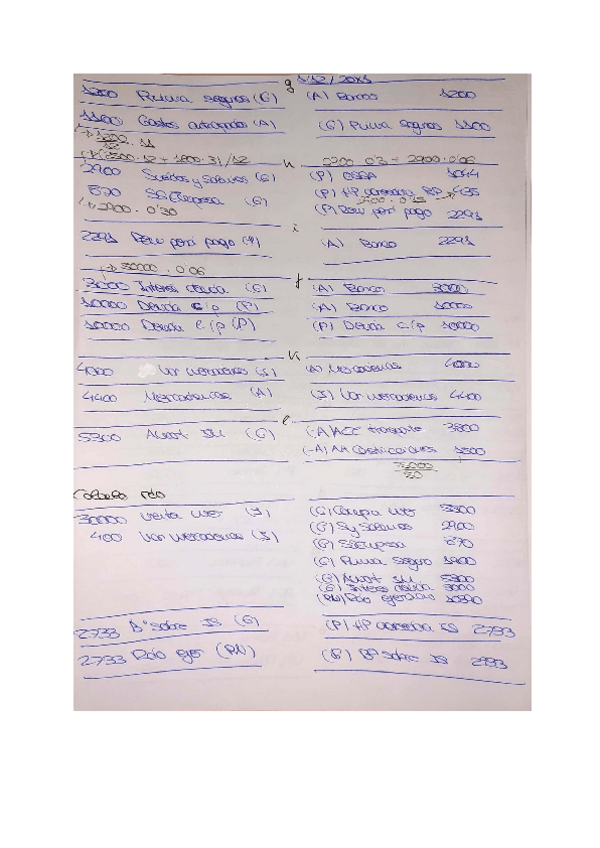 g 1/12/20x1
1200 Prima seguros (G) (A) Banco 1200
1100 Gastos anticipados (A) (G) Prima seguros 1100
1200/12 · 11
h
2900 Sueldos y Salarios (G) (P) OSSA 1044
870 SS Empresa (G) (P) HP acreedora 435
2900 · 0'30 (P) Rem pend pago 2291
i
2291 Rem pend pago (P) (A) Banco 2291
50000 · 0'06
j
3000 Interes deuda (G) (A) Banco 3000
10000 Deuda c/p (P) (A) Banco 10000
10000 Deuda l/p (P) (P) Deuda c/p 10000
k
4000 Var mercaderias (I) (A) Mercaderias 4000
4400 Mercaderias (A) (I) Var mercaderias 4400
l
5300 Amort IM (G) (-A) 3800
(-A) AA Construcciones 1500
75000/50
30000 Venta mer (I) (G) Compra mer
400 Var mercaderias (I) (G) S y Salarios 2900
(G) SS Empresa 870
(G) Prima Seguro
(G) Amort IM 5300
(G) Interes deuda 3000
(PN) Rdo ejercicio
2733 Bº sobre IS (G) (P) HP acreedora IS 2733
2733 Rdo ejer (PN) (G) Bº sobre IS 2733